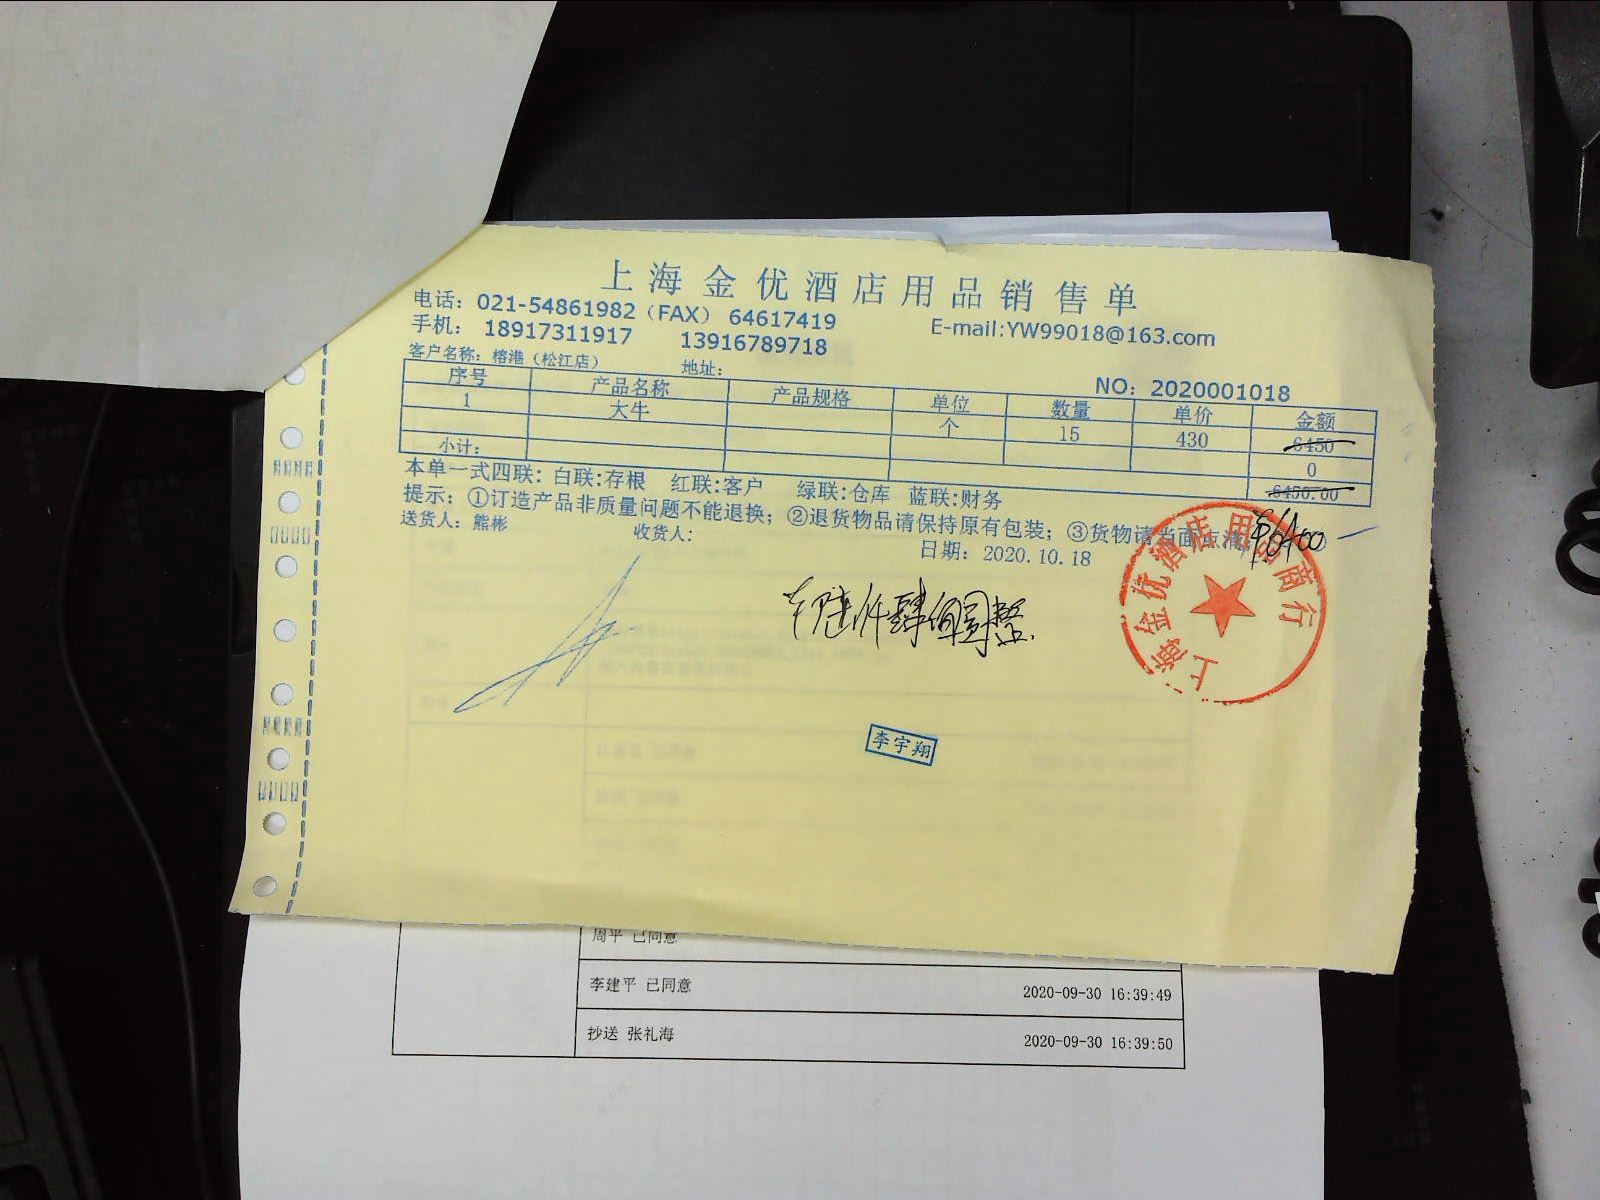 上海金优酒店用品销售单
电话：021-54861982（FAX） 64617419
手机： 18917311917 13916789718
E-mail:YW99018@163.com
客户名称：榕港（松江店） 地址：
NO：2020001018
序号 产品名称 产品规格 单位 数量 单价 金额
1 大牛 个 15 430 6450
0
小计： 6450.00
本单一式四联：白联:存根 红联:客户 绿联:仓库 蓝联:财务
提示：①订造产品非质量问题不能退换；②退货物品请保持原有包装；③货物请当面点清
送货人：熊彬 收货人： 日期：2020.10.18
陆仟肆佰圆整
上海金优酒店用品商行
李宇翔
周平 已同意
李建平 已同意 2020-09-30 16:39:49
抄送 张礼海 2020-09-30 16:39:50